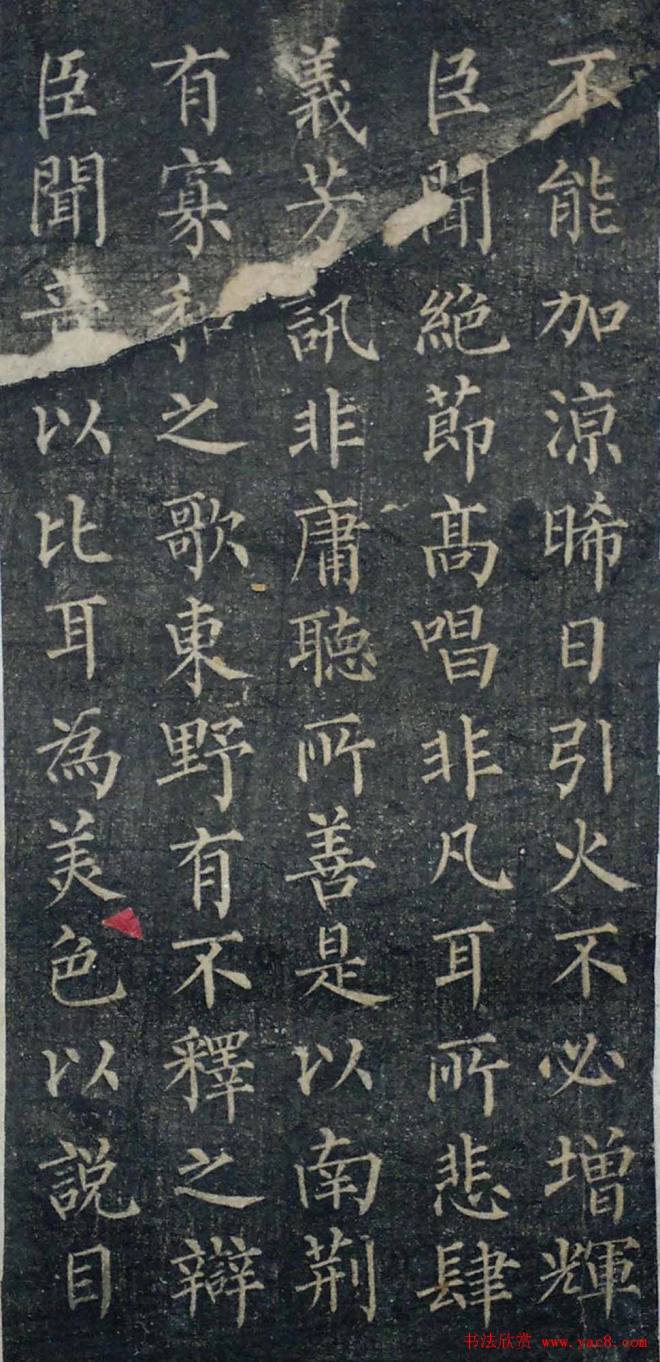 不能加涼晞日引火不必增輝
臣聞絶節髙唱非凡耳所悲肆
義芳訊非庸聽所善是以南荆
有寡和之歌東野有不釋之辯
臣聞音以比耳為美色以説目
书法欣赏 www.yac8.com